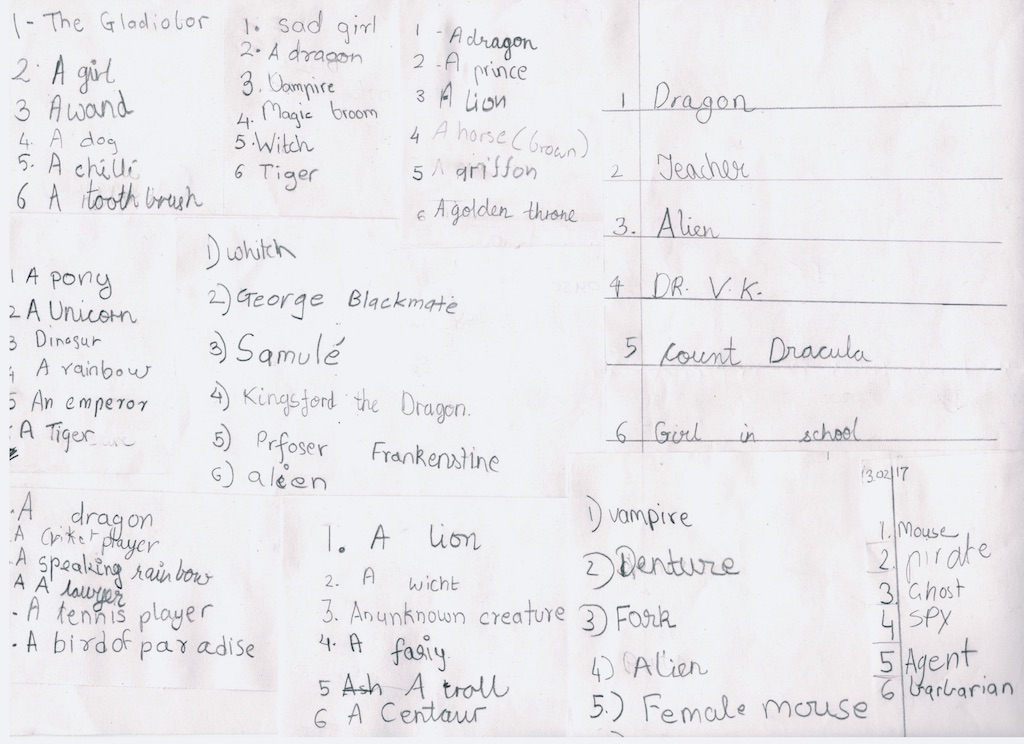 1 - The Gladiator
2. A girl
3 A wand
4. A dog
5. A chilli
6 A toothbrush
1. sad girl
2. A dragon
3. Vampire
4. Magic broom
5. Witch
6 Tiger
1 - A dragon
2 - A prince
3 A Lion
4 A horse (brown)
5 A griffon
6 A golden throne
1 Dragon
2 Teacher
3. Alien
4 DR. V.K.
5 Count Dracula
6 Girl in school
1 A pony
2 A Unicorn
3 Dinosur
4 A rainbow
5 An emperor
A Tiger
1) whitch
2) George Blackmate
3) Samulé
4) Kingsford the Dragon.
5) Prfoser Frankenstine
6) alien
- A dragon
A criket player
- A speaking rainbow
A A lawyer
- A tennis player
- A bird of paradise
1. A lion
2. A wicht
3. An unknown creature
4. A fariy
5 A troll
6 A Centaur
1) vampire
2) Denture
3) Fork
4) Alien
5.) Female mouse
13 02 17
1. Mouse
2. pirate
3. Ghost
4 SPY
5 Agent
6 barbarian